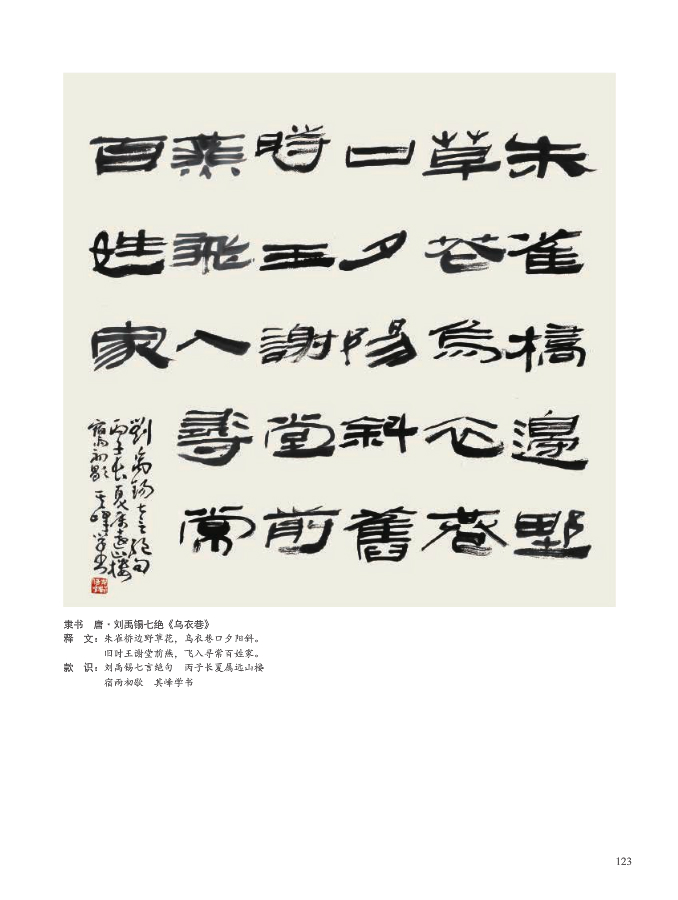 朱雀橋邊野
草花烏衣巷
口夕陽斜舊
時王謝堂前
燕飛入尋常
百姓家
劉禹錫七言絕句
丙子長夏屬遠山樓
宿雨初歇 其峰學書
隶书 唐·刘禹锡七绝《乌衣巷》
释 文：朱雀桥边野草花，乌衣巷口夕阳斜。
旧时王谢堂前燕，飞入寻常百姓家。
款 识：刘禹锡七言绝句 丙子长夏属远山楼
宿雨初歇 其峰学书
123